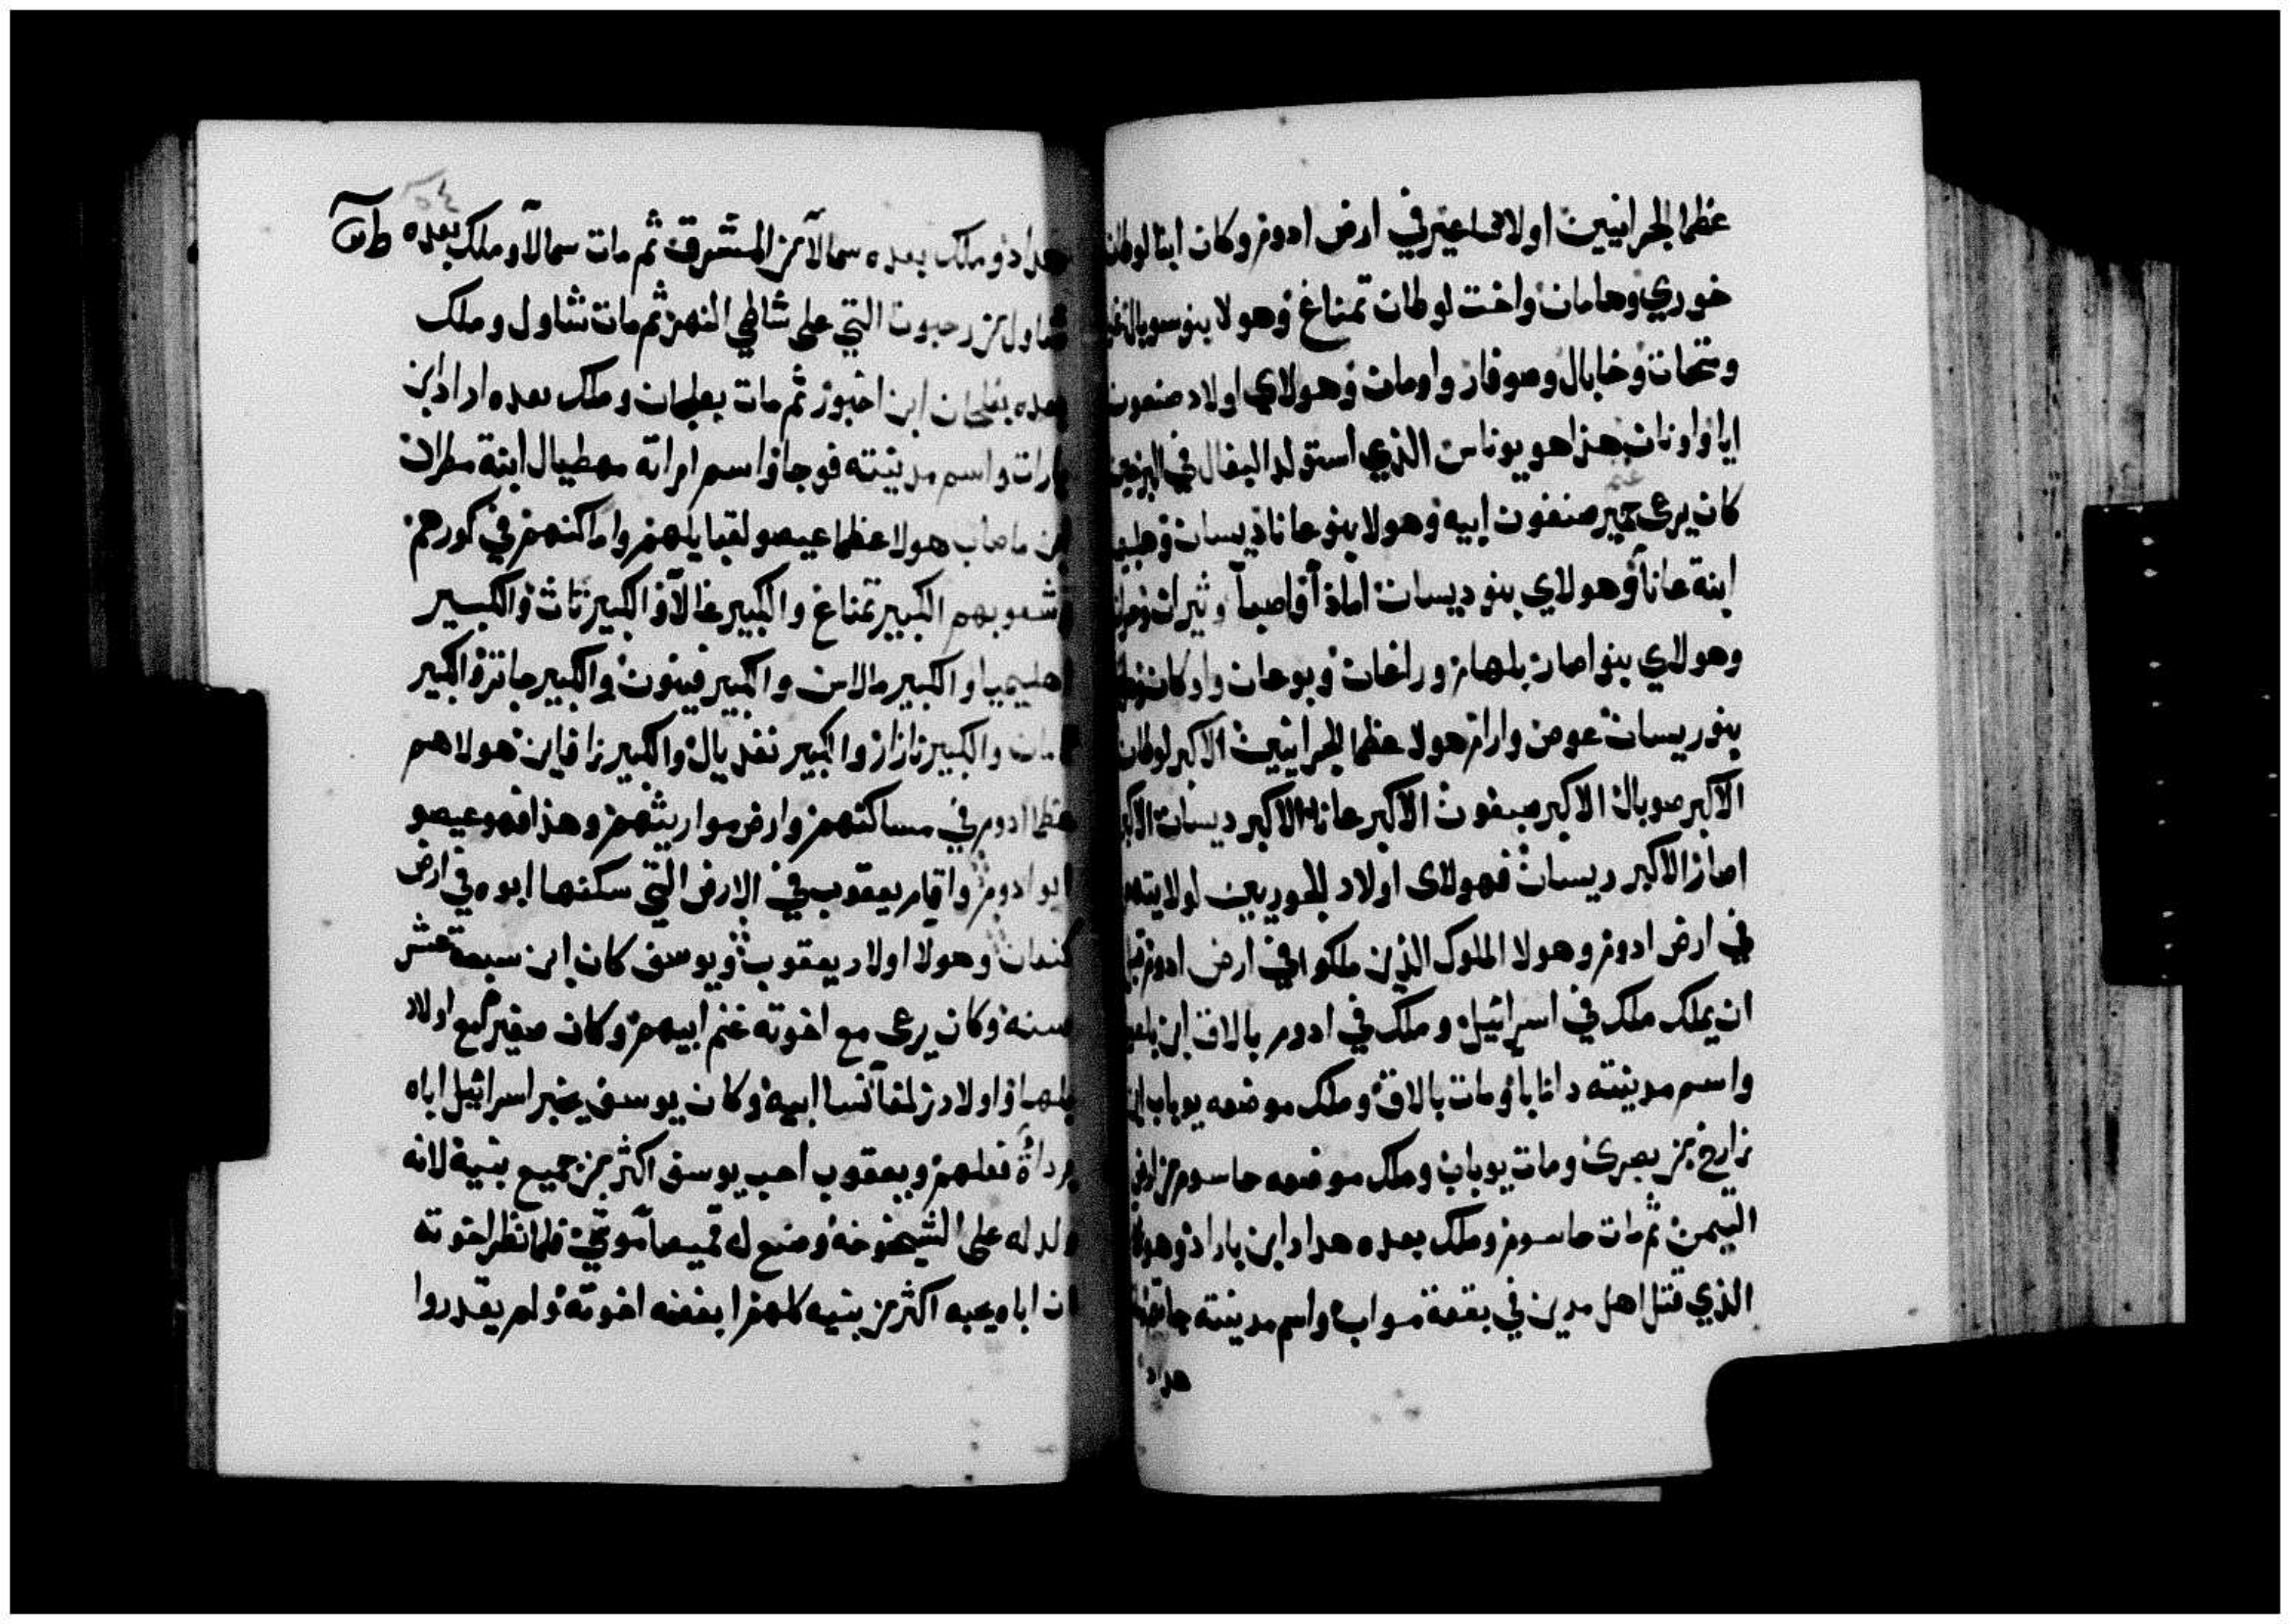 عظما الحرانيين اولاد ساعير في ارض ادوم وكان ابنا لوطان
خوري وهامان واخت لوطان تمناغ وهولا بنو سوبال
ومنحات وخابال وصوفار واومان وهولاي اولاد صنعون
ايا واونان هذا هو يوناس الذي استولد البغال في البرية
كان يرعى حمير صنفون ابيه وهولا بنو عانا ديسان
ابنة عانا وهولاي بنو ديسان امادا واصبا وثيران
وهولاي بنو اصار بلهام وزاغان وبوعان واوكان
بنو ريسان عوص وارام هولا عظما الحرانيين الاكبر لوطان
الاكبر صوبال الاكبر صبغون الاكبر عانا الاكبر ديسان الاكبر
اصار الاكبر ريسان فهولاى اولاد الحوريين لولايتهم
في ارض ادوم وهولا الملوك الذين ملكوا في ارض ادوم قبل
ان يملك ملك في اسرائيل وملك في ادوم بالاق ابن
واسم مدينته دانابا ومات بالاق وملك موضعه يوباب ابن
زارح من بصرى ومات يوباب وملك موضعه حاسوم من ارض
اليمن ثم مات حاسوم وملك بعده هداد ابن باراد وهو
الذي قتل اهل مدين في بقعة مواب واسم مدينته
هداد
هداد وملك بعده سمالا من المشرق ثم مات سمالا وملك بعده
شاول من رحبوت التي على شاطي النهر ثم مات شاول وملك
بعده بعلحان ابن اخبور ثم مات بعلحان وملك بعده اراد ابن
بارات واسم مدينته فوجا واسم امراته مهطيال ابنة مطران
ابن ماضاب هولا عظما عيصو لقبايلهم واماكنهم في كورهم
وشعوبهم الكبير تمناغ والكبير غالا والكبير تاث والكبير
اهليميا والكبير مالاس والكبير فينون والكبير جانز والكبير
تامان والكبير نازار والكبير نغديال والكبير زافاين هولا هم
عظما ادوم في مساكنهم وارض مواريثهم وهذا هو عيصو
ابو ادوم واقام يعقوب في الارض التي سكنها ابوه في ارض
كنعان وهولا اولاد يعقوب ويوسف كان ابن سبعة عشر
سنة وكان يرعى مع اخوته غنم ابيهم وكان صغير مع اولاد
بلها واولاد زلفا نسا ابيه وكان يوسف يخبر اسرائيل اباه
برداة فعلهم ويعقوب احب يوسف اكثر من جميع بنيه لانه
ولد له على الشيخوخة وصنع له قميصا موشى فلما نظر اخوته
ان اباه يحبه اكثر من بنيه كلهم ابغضه اخوته ولم يقدروا